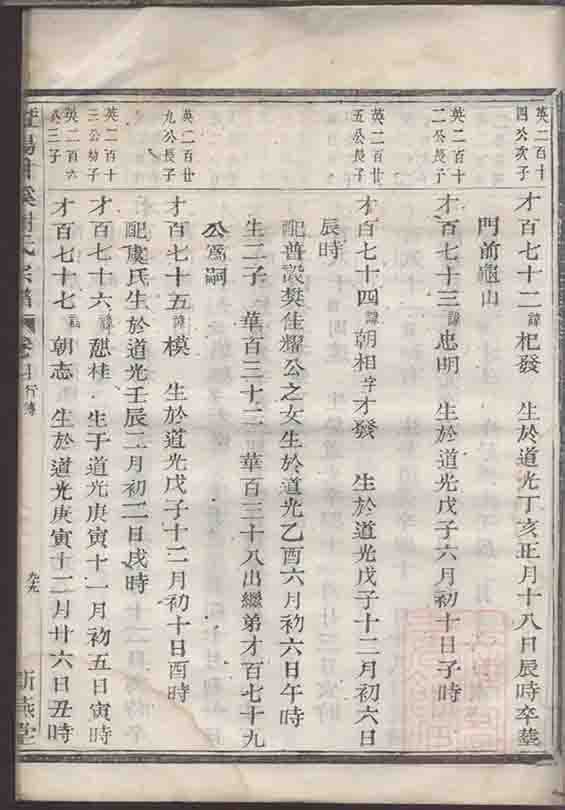 英二百十
四公次子
才百七十二諱杞發　生於道光丁亥正月十八日辰時卒葬
門前龜山
英二百十
二公長子
才百七十三諱忠明　生於道光戊子六月初十日子時
英二百廿
五公長子
才百七十四諱朝相字才發　生於道光戊子十二月初六日
辰時
配善設樊佳耀公之女生於道光乙酉六月初六日午時
生二子　華百三十二　華百三十八出繼弟才百七十九
公爲嗣
英二百廿
九公長子
才百七十五諱模　生於道光戊子十二月初十日酉時
配虞氏生於道光壬辰二月初二日戌時
英二百十
三公幼子
才百七十六諱憇桂　生于道光庚寅十一月初五日寅時
英二百六
公三子
才百七十七諱朝志　生於道光庚寅十二月廿六日丑時
陽 溪 氏宗譜 卷 行傳